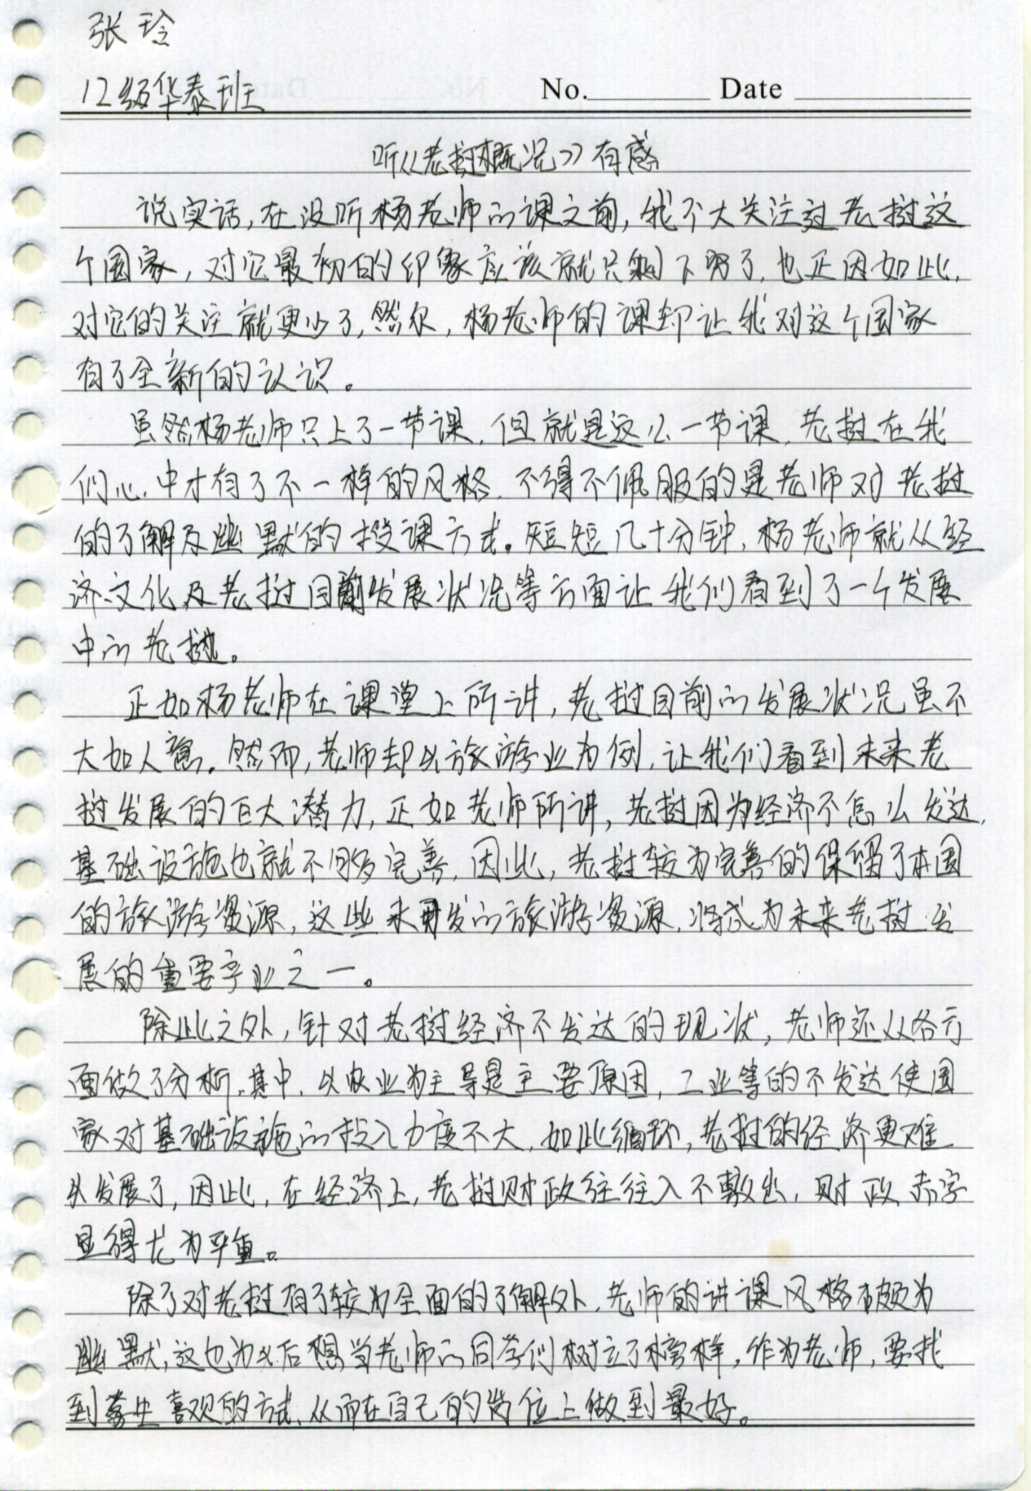 张玲
12级华泰班
No. Date
听《老挝概况》有感
说实话,在没听杨老师的课之前,我不大关注过老挝这
个国家,对它最初的印象应该就只剩下穷了,也正因如此,
对它的关注就更少了,然尔,杨老师的课却让我对这个国家
有了全新的认识。
虽然杨老师只上了一节课,但就是这么一节课,老挝在我
们心中才有了不一样的风格,不得不佩服的是老师对老挝
的了解及幽默的授课方式。短短几十分钟,杨老师就从经
济文化及老挝目前发展状况等方面让我们看到了一个发展
中的老挝。
正如杨老师在课堂上所讲,老挝目前的发展状况虽不
大如人意。然而,老师却以旅游业为例,让我们看到未来老
挝发展的巨大潜力,正如老师所讲,老挝因为经济不怎么发达,
基础设施也就不够完善,因此,老挝较为完善的保留了本国
的旅游资源,这些未开发的旅游资源,将成为未来老挝发
展的重要产业之一。
除此之外,针对老挝经济不发达的现状,老师还从各方
面做了分析,其中,以农业为主导是主要原因,工业等的不发达使国
家对基础设施的投入力度不大,如此循环,老挝的经济更难
以发展了,因此,在经济上,老挝财政往往入不敷出,财政赤字
显得尤为严重。
除了对老挝有了较为全面的了解外,老师的讲课风格颇为
幽默,这也为以后想当老师的同学们树立了榜样,作为老师,要找
到学生喜欢的方式,从而在自己的岗位上做到最好。